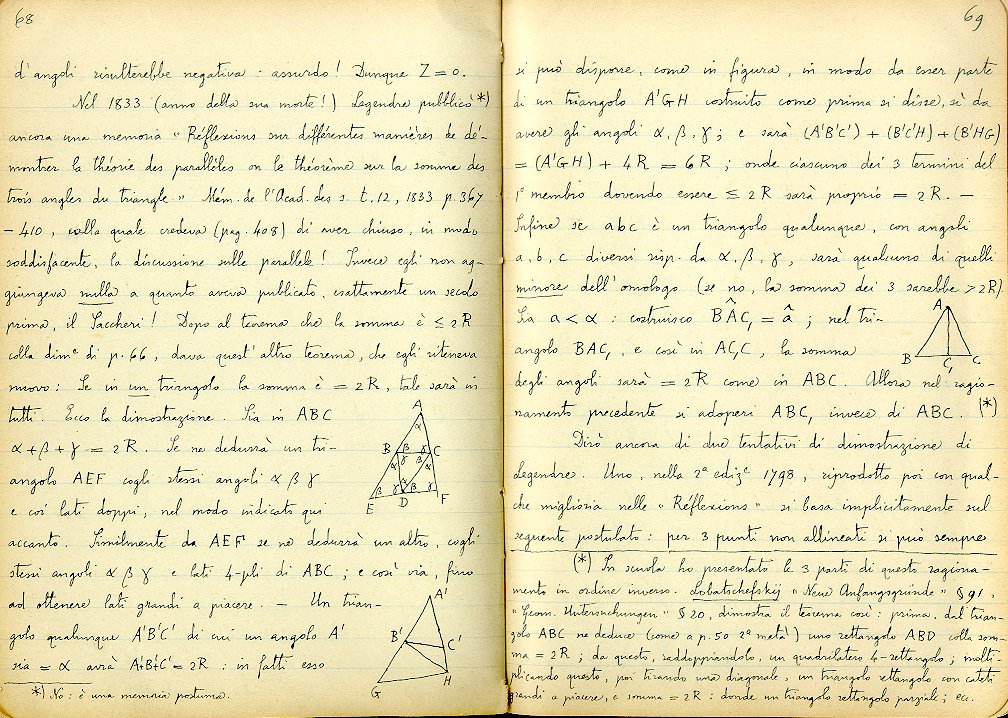 68
d'angoli risulterebbe negativa : assurdo! Dunque Z = 0.
Nel 1833 (anno della sua morte!) Legendre pubblicò *)
ancora una memoria "Réflexions sur différentes manières de dé-
montrer la théorie des parallèles ou le théorème sur la somme des
trois angles du triangle" Mém. de l'Acad. des s. t. 12, 1833 p. 367
- 410, nella quale credeva (pag. 408) di aver chiuso, in modo
soddisfacente, la discussione sulle parallele! Invece egli non ag-
giungeva nulla a quanto aveva pubblicato, esattamente un secolo
prima, il Saccheri! Dopo al teorema che la somma è ≤ 2R
colla dim.e di p. 66, dava quest'altro teorema, che egli riteneva
nuovo: Se in un triangolo la somma è = 2R, tale sarà in
tutti. Ecco la dimostrazione. Sia in ABC
α + β + γ = 2R. Se ne dedurrà un tri-
angolo AEF cogli stessi angoli α β γ
e coi lati doppi, nel modo indicato qui
accanto. Similmente da AEF se ne dedurrà un altro, cogli
stessi angoli α β γ e lati 4-pli di ABC ; e così via, fino
ad ottenere lati grandi a piacere. — Un trian-
golo qualunque A'B'C' di cui un angolo A'
sia = α avrà A'+B'+C' = 2R : infatti esso
*) No: è una memoria postuma.
A
α
B β γ C
α γ β α
β γ β γ
E D F
A'
B'
C'
G H
69
si può disporre, come in figura, in modo da esser parte
di un triangolo A'GH costruito come prima si disse, sì da
avere gli angoli α, β, γ ; e sarà (A'B'C') + (B'C'H) + (B'HG)
= (A'GH) + 4R = 6R ; onde ciascuno dei 3 termini del
1° membro dovendo essere ≤ 2R sarà proprio = 2R. —
Infine se abc è un triangolo qualunque, con angoli
a, b, c diversi risp. da α, β, γ, sarà qualcuno di quelli
minore dell'omologo (se no, la somma dei 3 sarebbe > 2R).
Sia a < α : costruisco BÂC₁ = â ; nel tri-
angolo BAC₁, e così in AC₁C, la somma
degli angoli sarà = 2R come in ABC. Allora nel ragio-
namento precedente si adoperi ABC₁ invece di ABC. (*)
A
B C₁ C
Dirò ancora di due tentativi di dimostrazione di
Legendre. Uno, nella 2ª ediz.e 1798, riprodotto poi con qual-
che miglioria nelle "Réflexions" si basa implicitamente sul
seguente postulato : per 3 punti non allineati si può sempre
(*) In scuola ho presentato le 3 parti di questo ragiona-
mento in ordine inverso. Lobatschefskij "Neue Anfangsgründe" § 91,
"Geom. Untersuchungen" § 20, dimostra il teorema così : prima, dal trian-
golo ABC ne deduce (come a p. 50 2ª metà) uno rettangolo ABD colla som-
ma = 2R ; da questo, raddoppiandolo, un quadrilatero 4-rettangolo ; molti-
plicando questo, poi tirando una diagonale, un triangolo rettangolo con cateti
grandi a piacere, e somma = 2R : donde un triangolo rettangolo parziale ; ecc.